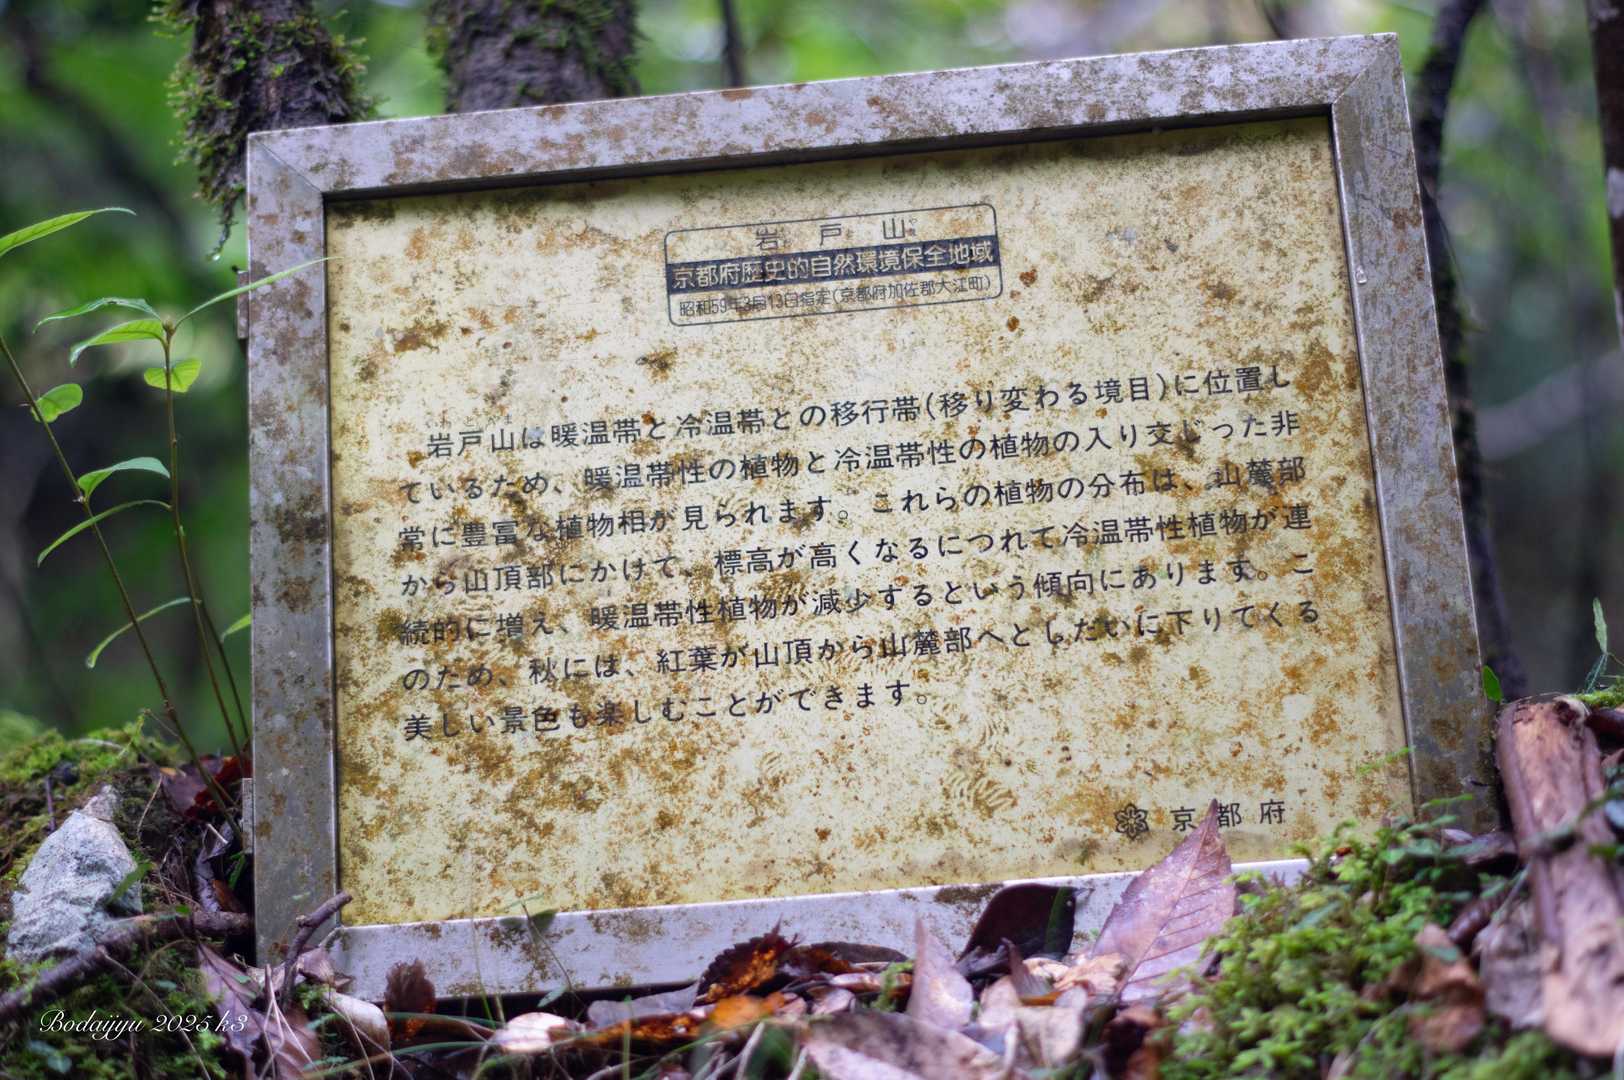 岩戸山
京都府歴史的自然環境保全地域
昭和59年3月13日指定(京都府加佐郡大江町)
岩戸山は暖温帯と冷温帯との移行帯(移り変わる境目)に位置し
ているため、暖温帯性の植物と冷温帯性の植物の入り交じった非
常に豊富な植物相が見られます。これらの植物の分布は、山麓部
から山頂部にかけて、標高が高くなるにつれて冷温帯性植物が連
続的に増え、暖温帯性植物が減少するという傾向にあります。こ
のため、秋には、紅葉が山頂から山麓部へとしだいに下りてくる
美しい景色も楽しむことができます。
京都府
Bodaijyu 2025 k3